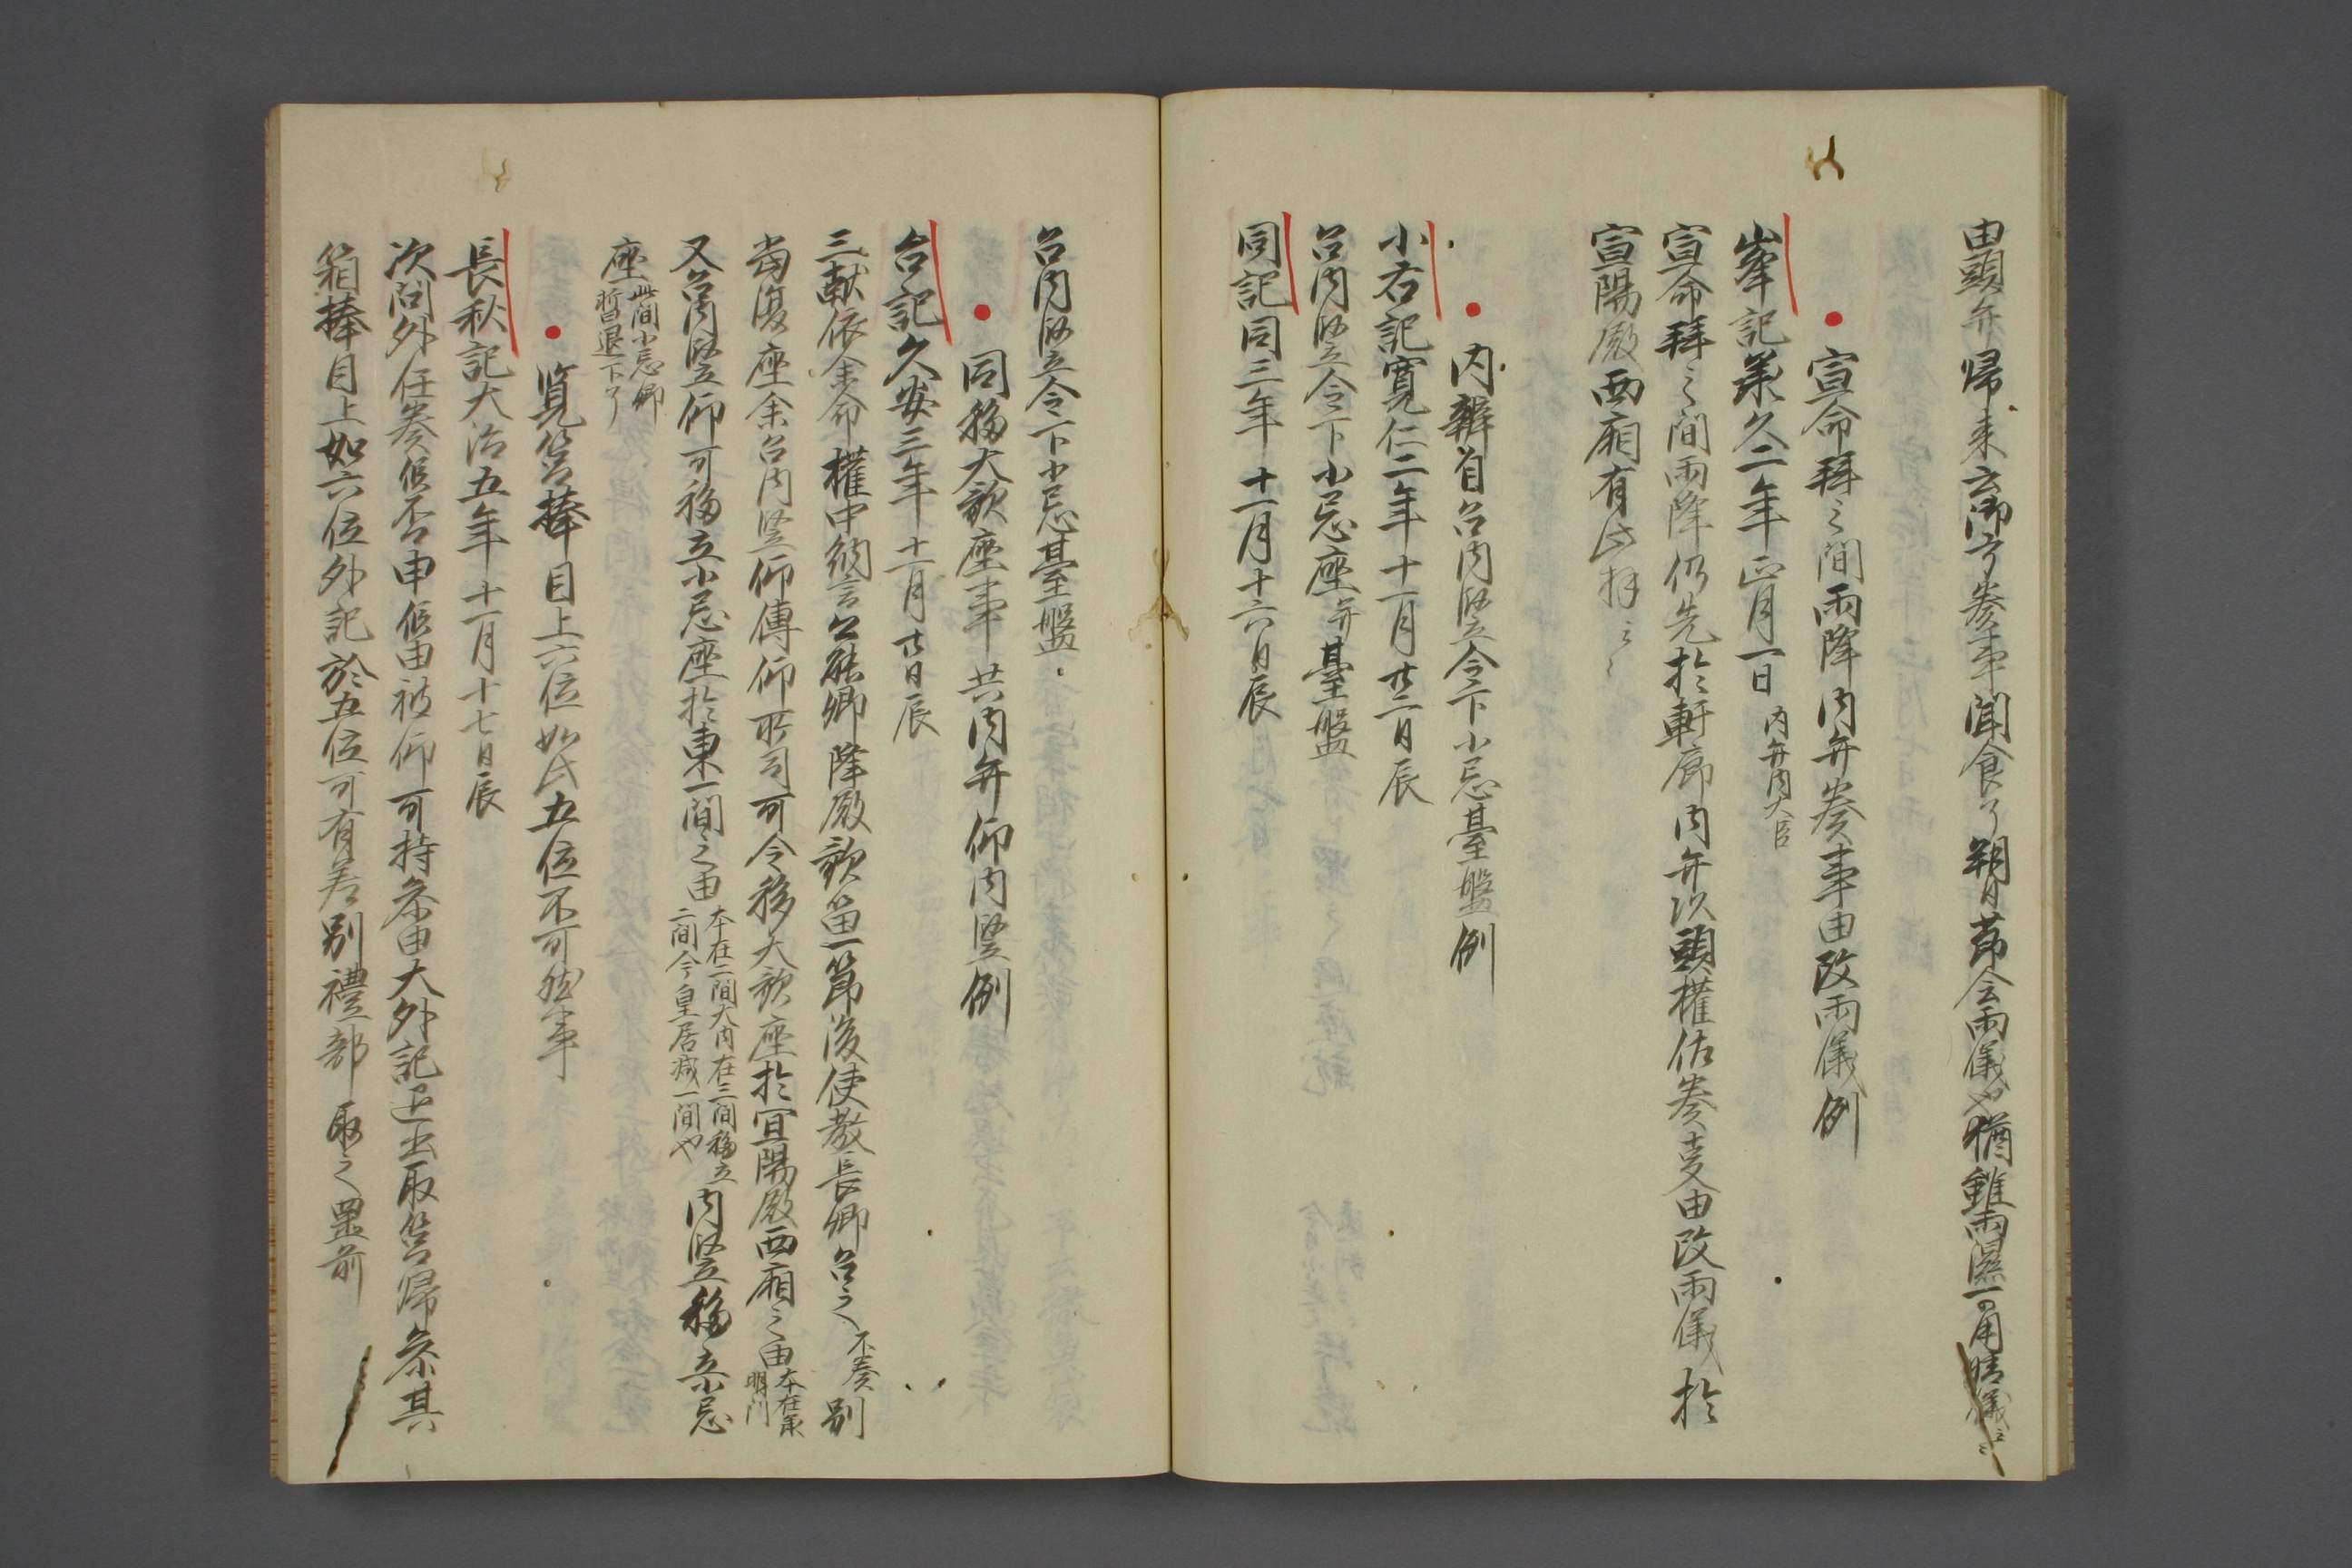 由頭弁帰来云御了奏事聞食了朔日節会雨儀也猶雖雨湿可用晴儀云々
宣命拝之間雨降内弁奏事由改雨儀例
峯記承久二年正月一日内弁内大臣
宣命拝之間雨降仍先於軒廊内弁以頭権佐奏事由改雨儀於
宣陽殿西廂有此拝云々
内辨自召内竪令下小忌臺盤例
小右記寛仁二年十一月廿二日辰
召内竪令下小忌座并臺盤
同記同三年十一月十六日辰
召内竪令下小忌臺盤
同移大歌座事共内弁仰内竪例
台記久安三年十一月廿日辰
三献依余命権中納言公能卿降殿歌笛一節後使教長卿召之不奏別
当復座余召内竪仰傳仰所司可令移大歌座於宣陽殿西廂之由本在承
明門
又召内竪仰可移立小忌座於東一間之由本在二間大内在三間移立
二間今皇居減一間也内竪移立小忌
座此間小忌卿
暫退下了
覧筥捧目上六位如此五位不可然事
長秋記大治五年十一月十七日辰
次問外任奏候否申候由被仰可持参由大外記退出取筥帰参其
箱捧目上如六位外記於五位可有差別禮部取之置前